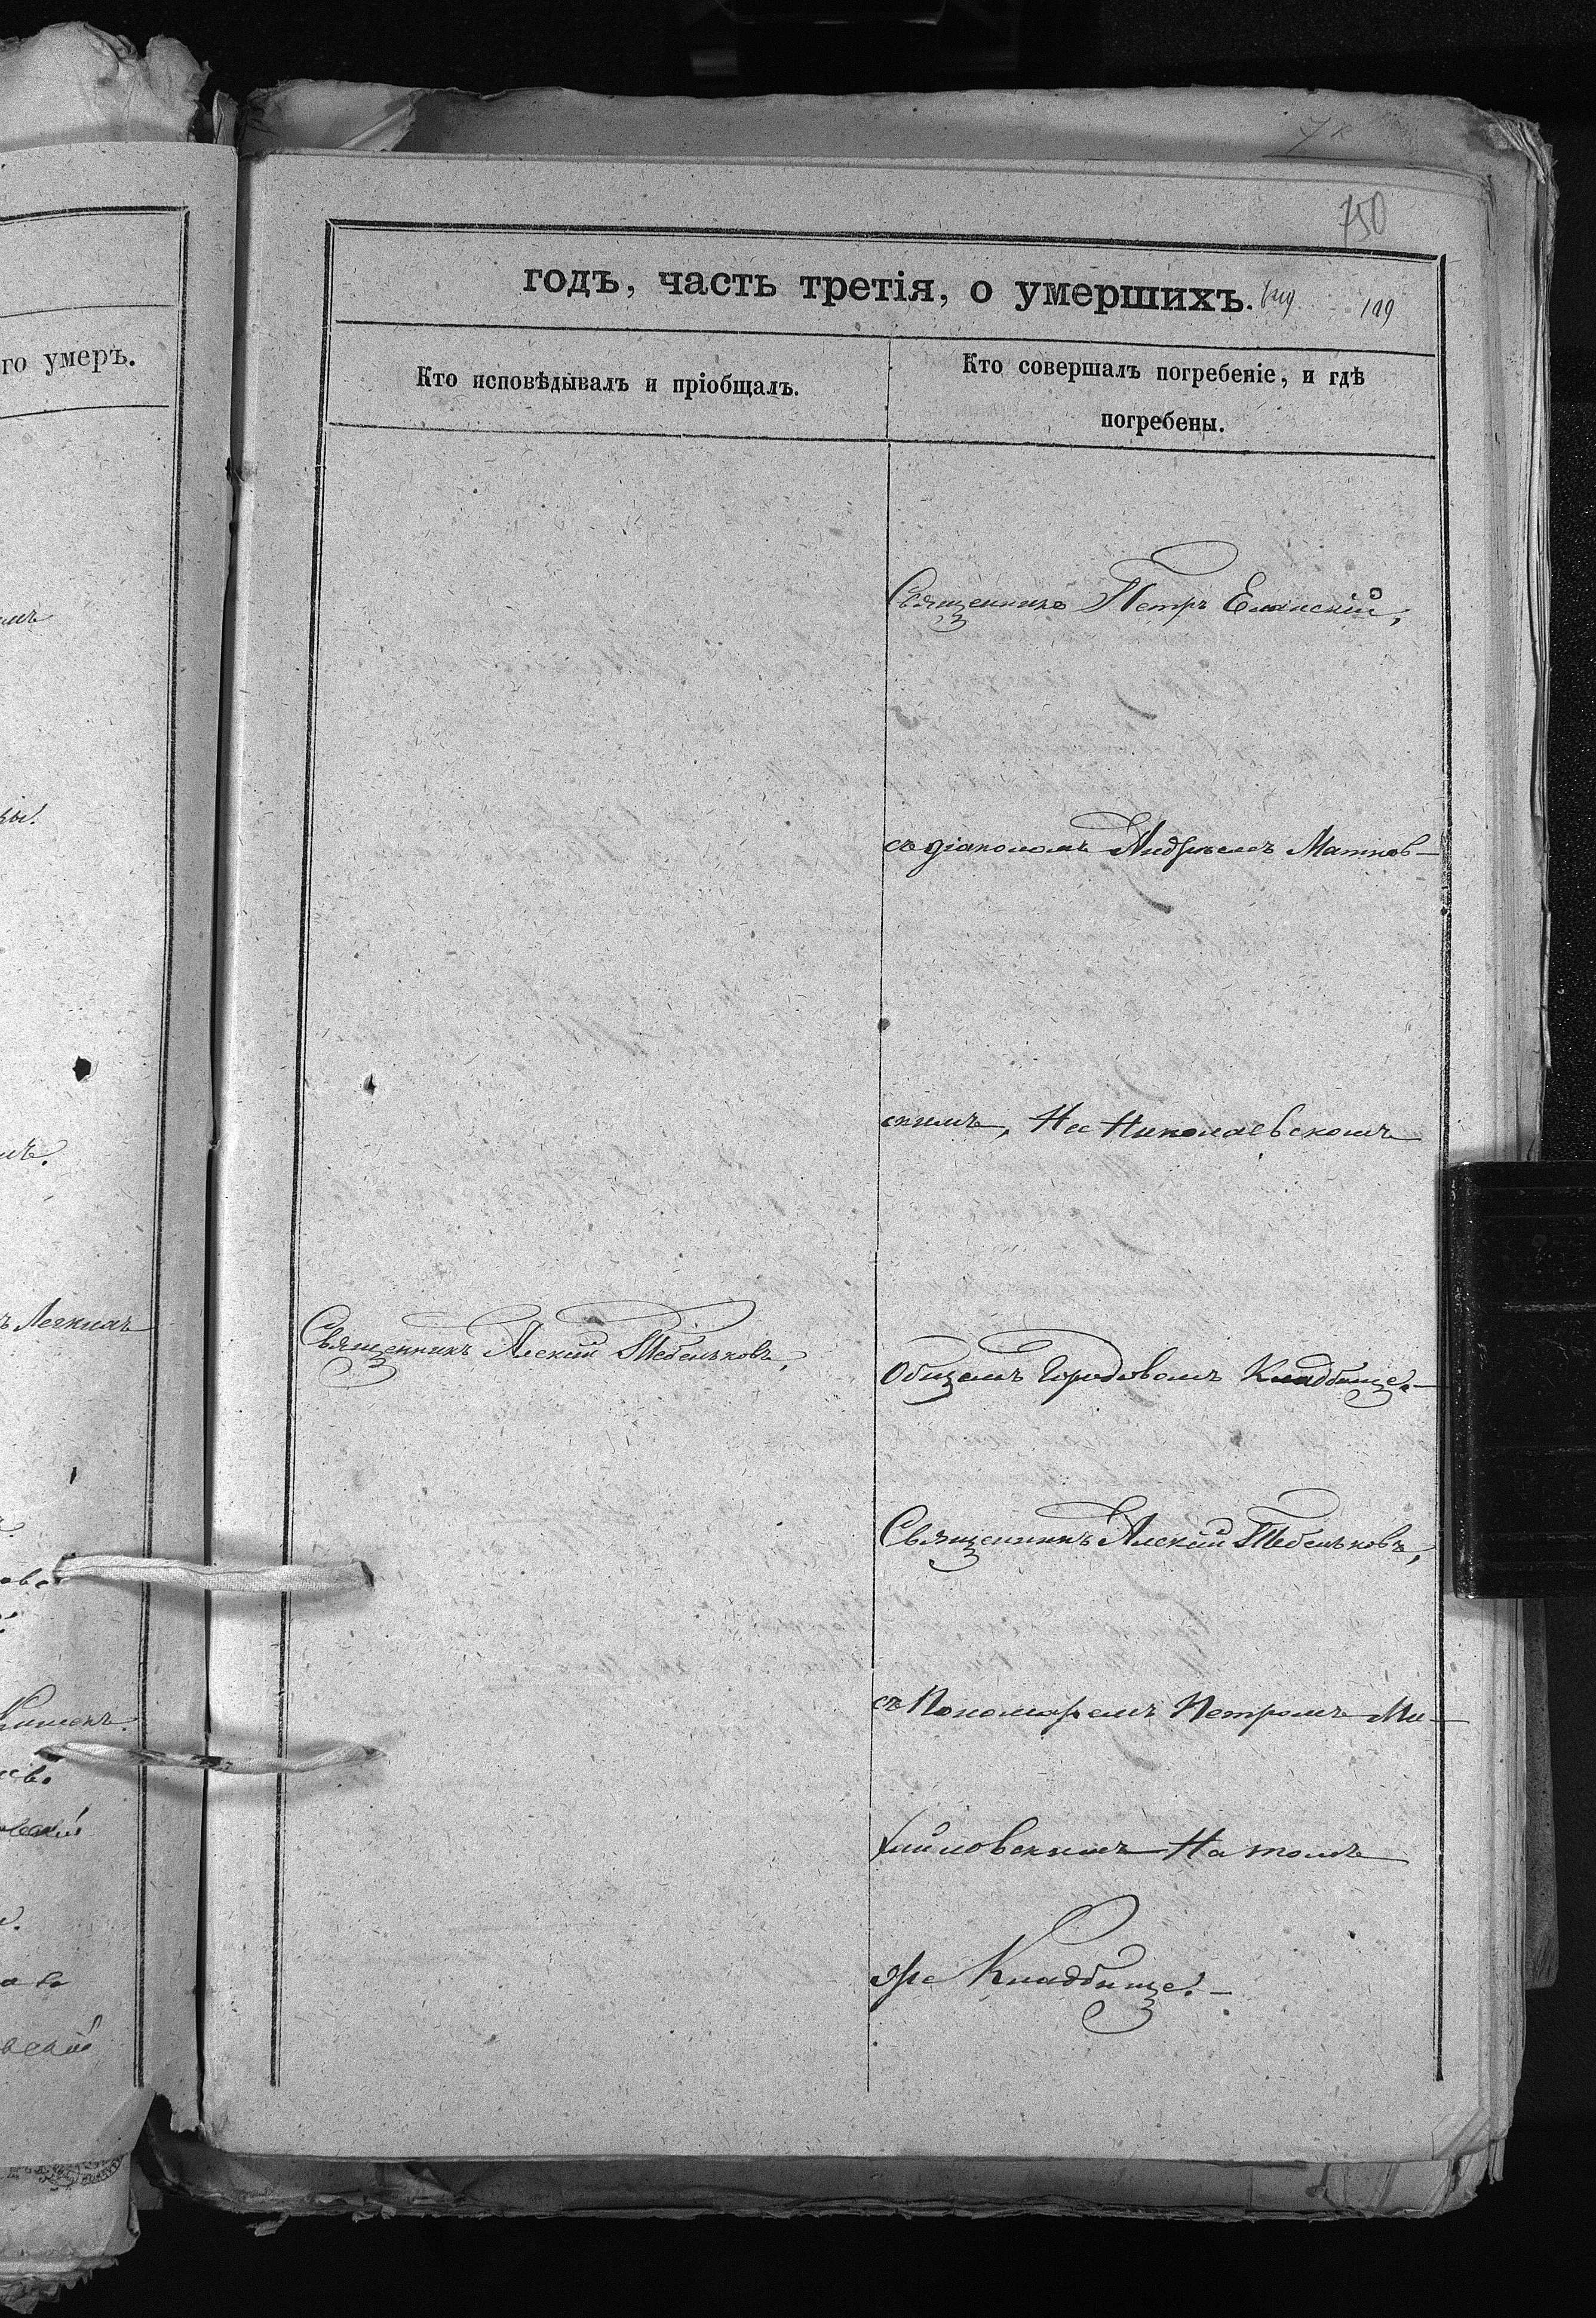 7 к
750
годъ, часть третія, о умершихъ.
199
го умеръ.
Кто исповѣдывалъ и пріобщалъ.
Кто совершалъ погребеніе, и гдѣ
погребены.
Священникъ Петръ Еланскій,
съ діакономъ Андреемъ Матков-
скимъ, На Николаевскомъ
ъ Легкихъ
Священникъ Алексій Тебеньковъ,
Общемъ Городовомъ Кладбище.-
Священникъ Алексій Тебеньковъ,
съ Пономаремъ Петромъ Ми-
хайловскимъ На томъ
же Кладбище.-